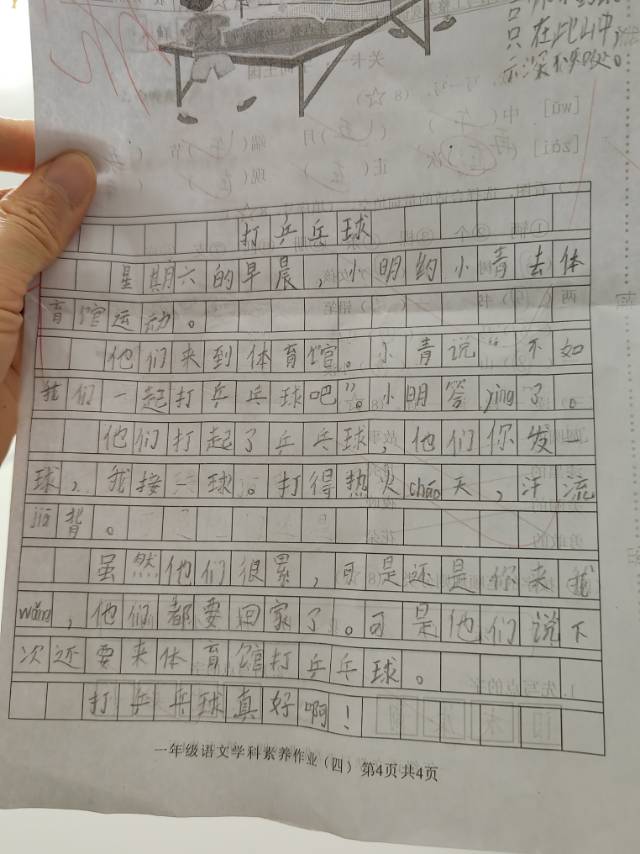 只在此山中,
示深不知处。
打乒乓球
星期六的早晨，小明约小青去体
育馆运动。
他们来到体育馆。小青说“不如
我们一起打乒乓球吧”。小明答yìng了。
他们打起了乒乓球，他们你发一
球，我接一球。打得热火cháo天，汗流
jiā背。
虽然他们很累，可是还是你来我
wǎng，他们都要回家了。可是他们说下
次还要来体育馆打乒乓球。
打乒乓球真好啊！
一年级语文学科素养作业（四） 第4页共4页